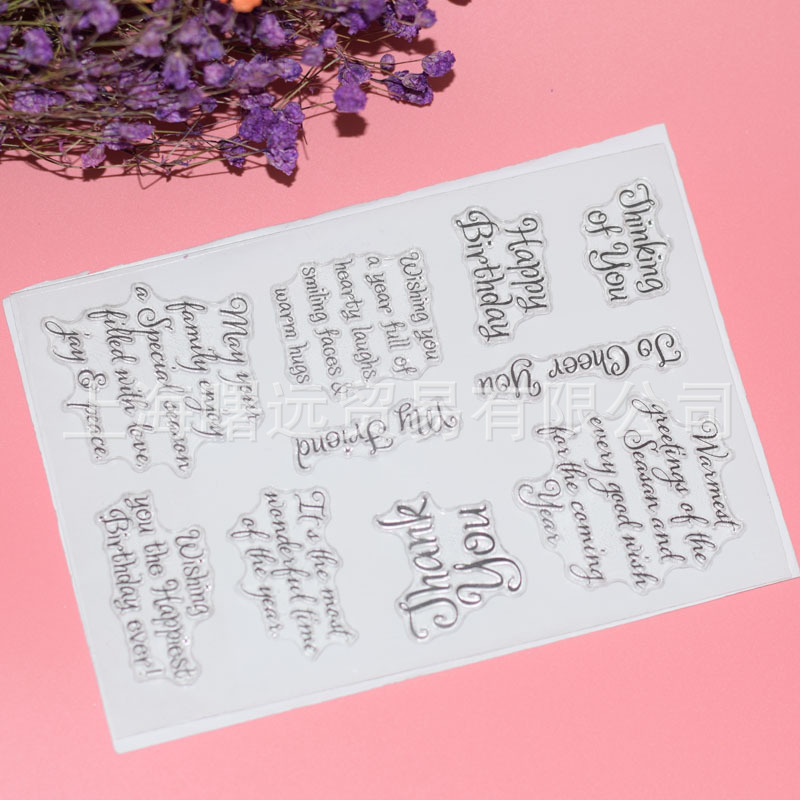 Thinking
of You
Happy
Birthday
Wishing you
a year full of
hearty laughs
smiling faces &
warm hugs
May your
family enjoy
a Special season
filled with love,
joy & peace
To Cheer You
My Friend
Warmest
greetings of the
Seasan and
every good wish
for the coming
Year
Thank
you
It's the most
wonderful time
of the year
Wishing
you the Happiest
Birthday ever!
上海曙远贸易有限公司